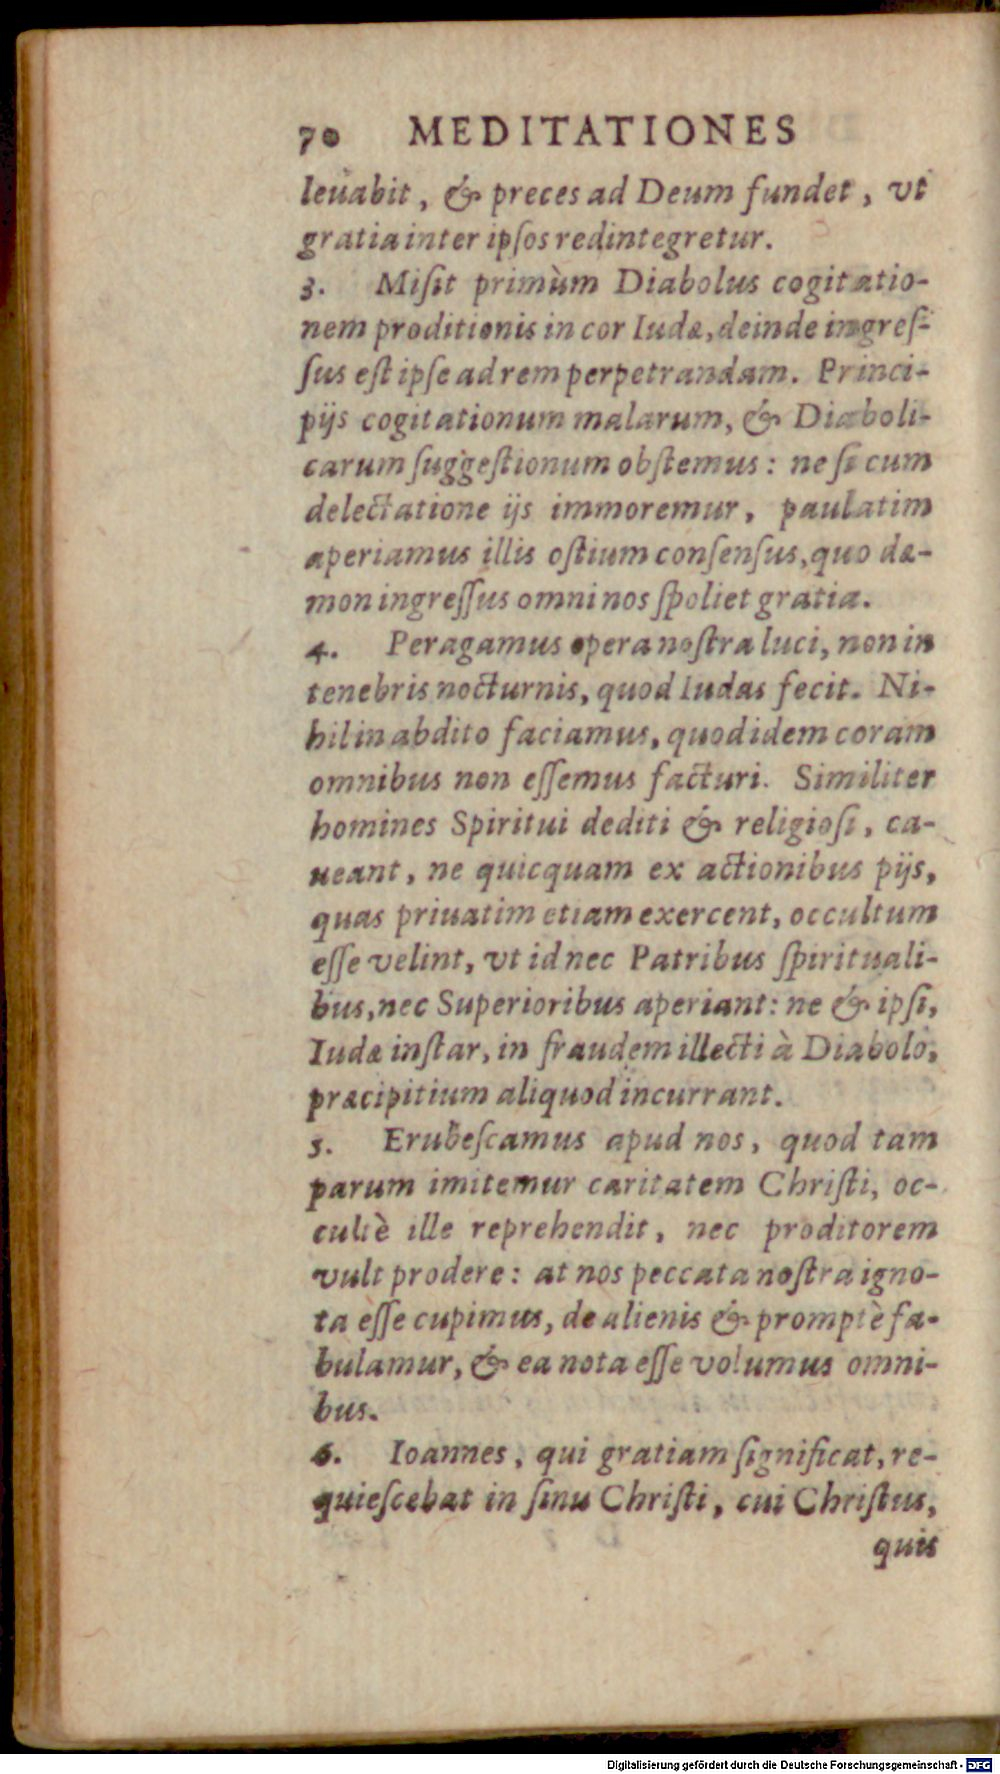 70 MEDITATIONES
leuabit, & preces ad Deum fundet, vt
gratia inter ipſos redintegretur.
3. Miſit primùm Diabolus cogitatio-
nem proditionis in cor Iudæ, deinde ingreſ-
ſus eſt ipſe ad rem perpetrandam. Princi-
pijs cogitationum malarum, & Diaboli-
carum ſuggeſtionum obſtemus: ne ſi cum
delectatione ijs immoremur, paulatim
aperiamus illis oſtium conſenſus, quo dæ-
mon ingreſſus omni nos ſpoliet gratia.
4. Peragamus opera noſtra luci, non in
tenebris nocturnis, quod Iudas fecit. Ni-
hil in abdito faciamus, quod idem coram
omnibus non eſſemus facturi. Similiter
homines Spiritui dediti & religioſi, ca-
ueant, ne quicquam ex actionibus pijs,
quas priuatim etiam exercent, occultum
eſſe velint, vt id nec Patribus ſpirituali-
bus, nec Superioribus aperiant: ne & ipſi,
Iudæ inſtar, in fraudem illecti à Diabolo,
præcipitium aliquod incurrant.
5. Erubeſcamus apud nos, quod tam
parum imitemur caritatem Chriſti, oc-
cultè ille reprehendit, nec proditorem
vult prodere: at nos peccata noſtra igno-
ta eſſe cupimus, de alienis & promptè fa-
bulamur, & ea nota eſſe volumus omni-
bus.
6. Ioannes, qui gratiam ſignificat, re-
quieſcebat in ſinu Chriſti, cui Chriſtus,
quis
Digitalisierung gefördert durch die Deutsche Forschungsgemeinschaft - DFG